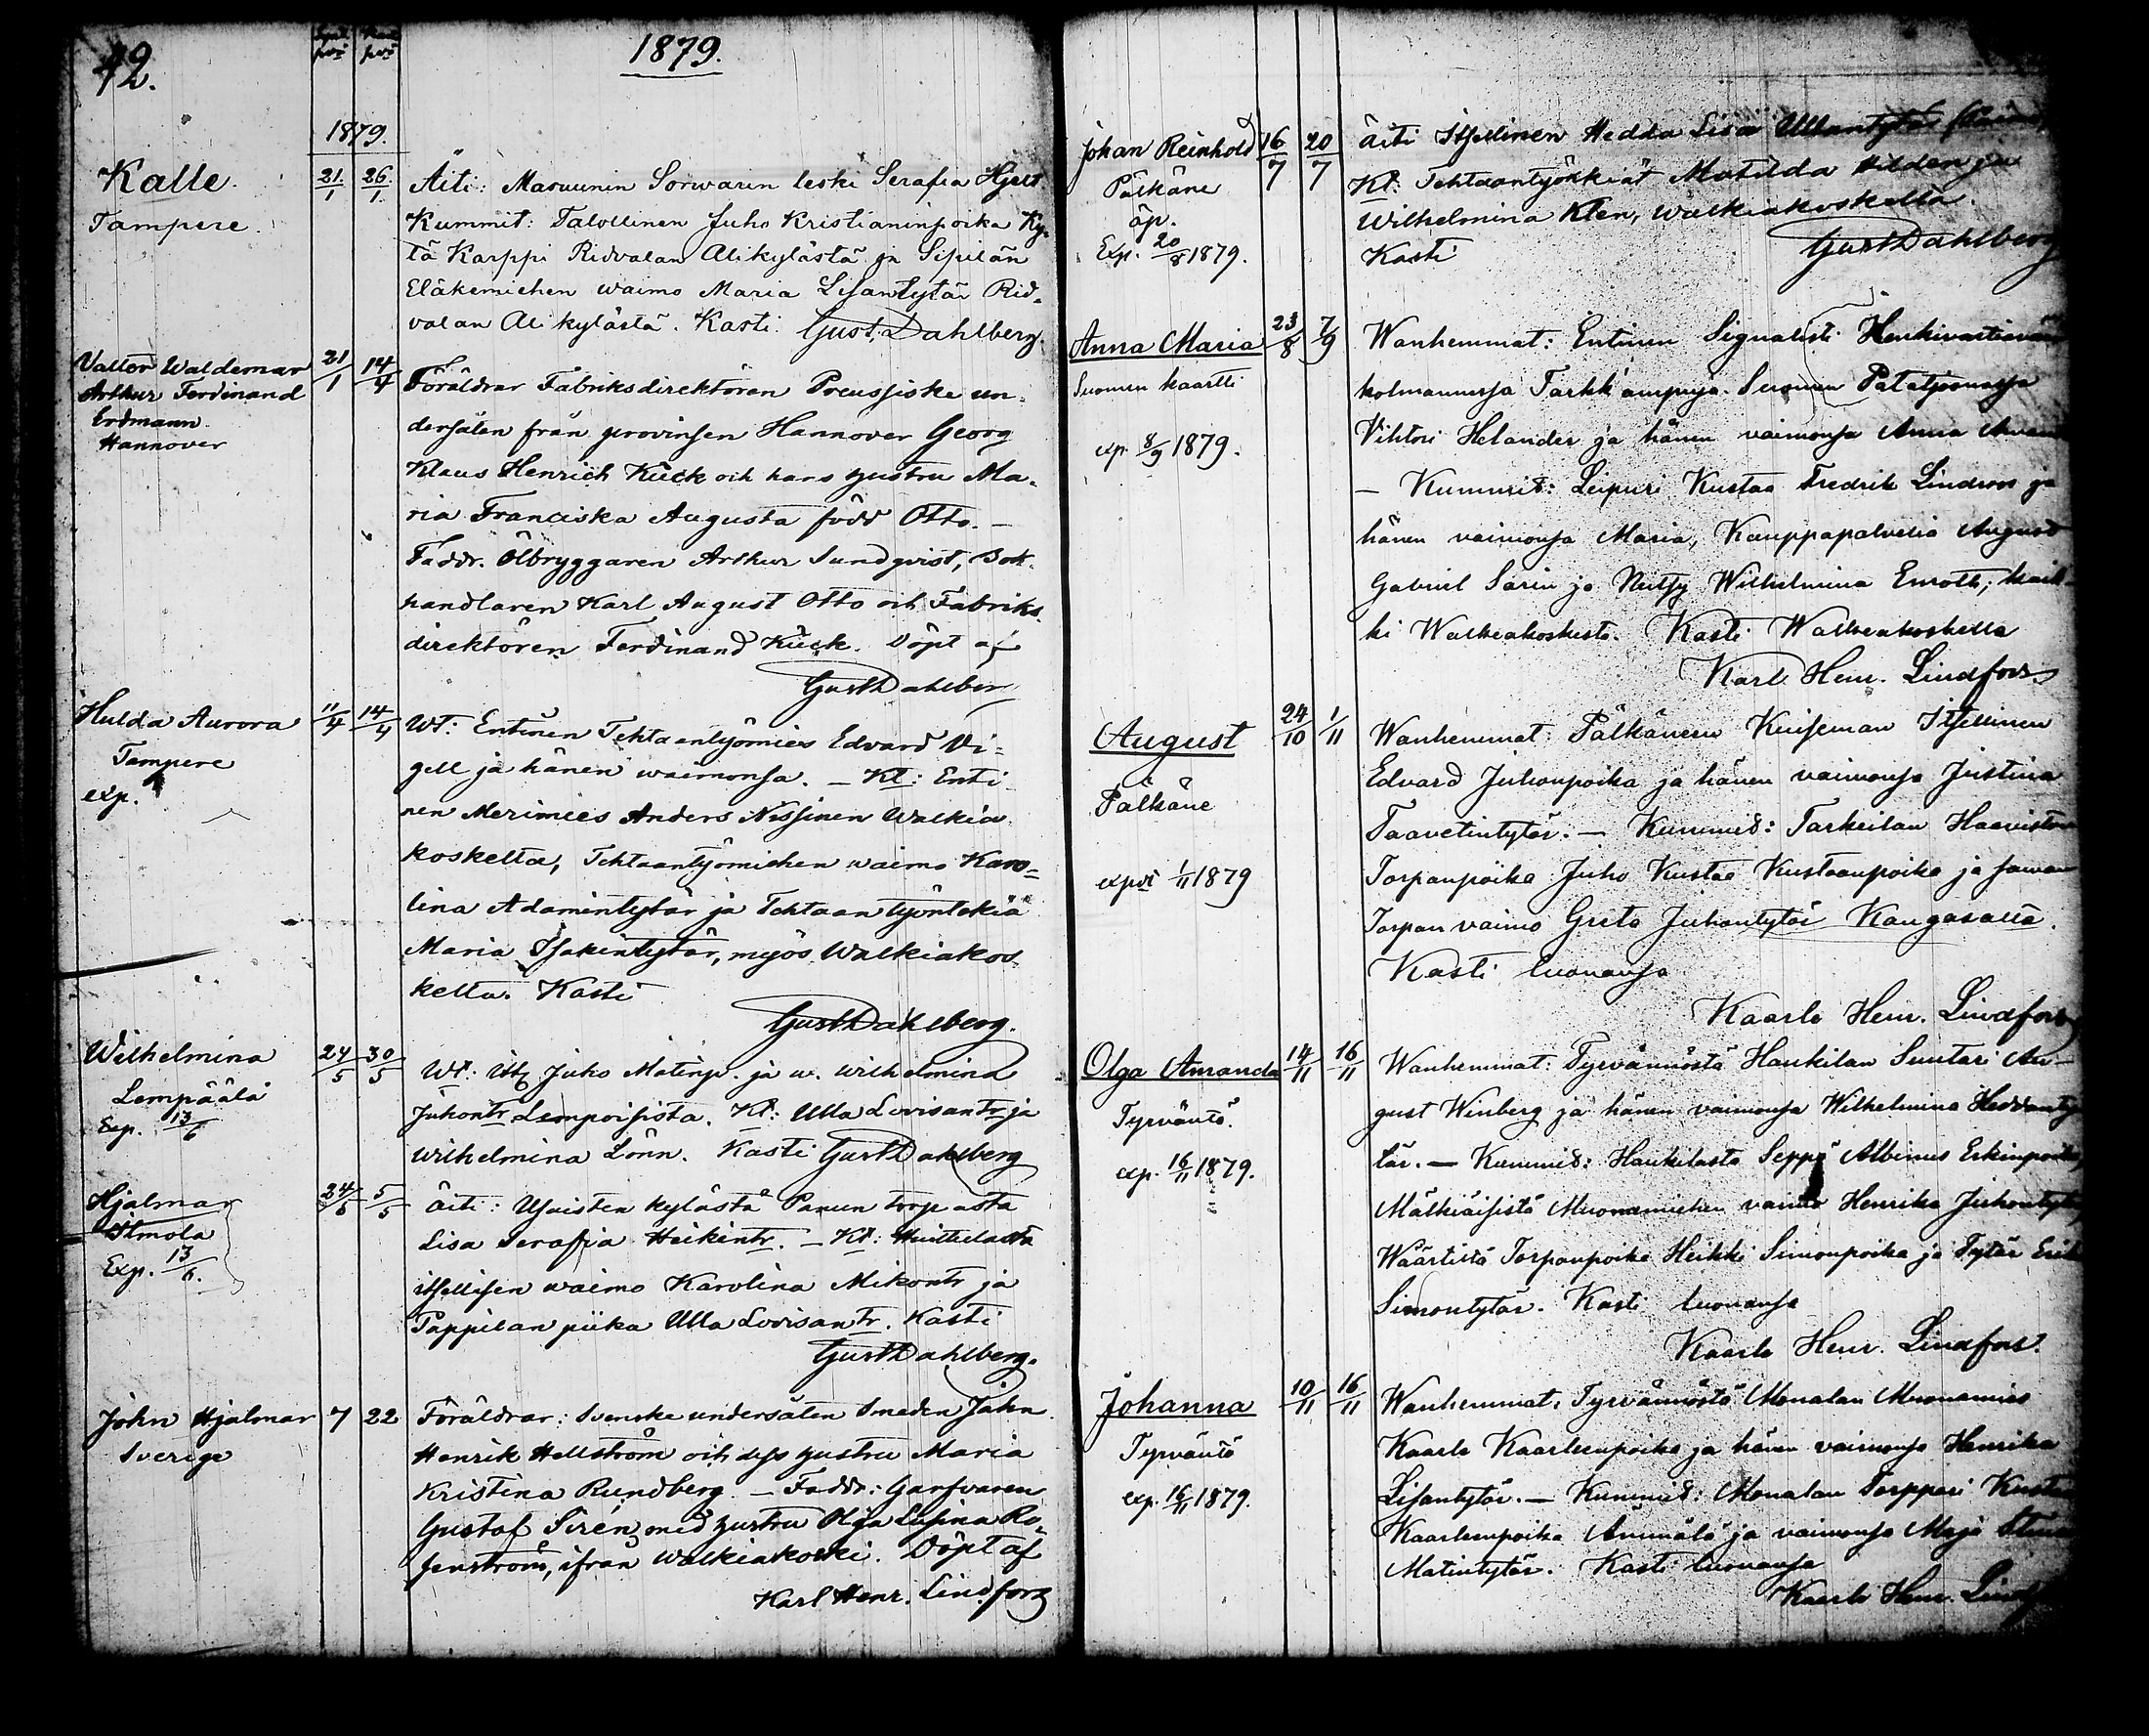 42.
Synt. pvä
Kast. pvä
1879.
1879.
Kalle.
Tampere.
21/1
26/1.
Äiti: Maruunin Sorwarin leski Serafia Hjelt
Kummit: Talollinen Juho Kristianinpoika Ky-
tä Karppi Ridvalan Alikylästä ja Sipilän
Eläkemiehen waimo Maria Lisantytär Rid-
valan Alikylästä. Kasti. Gust. Dahlberg
Valter Waldemar
Arthur Ferdinand
Erdmann.
Hannover
21/1
14/4
Föräldrar Fabriksdirektören Preussiske un-
dersåten från provinsen Hannover Georg
Klaus Henrich Kück och hans hustru Ma-
ria Franciska Augusta född Otto. —
Faddr. Ölbryggaren Arthur Sundqvist, Bok-
handlaren Karl August Otto och Fabriks-
direktören Ferdinand Kück. Döpt af
Gust Dahlberg
Hulda Aurora
Tampere
exp.
11/4
14/4
Wt: Entinen Tehtaantyömies Edvard Vi-
gell ja hänen waimonsa. — Kt: Enti-
nen Merimies Anders Nissinen Walkia-
koskelta, Tehtaantyömiehen waimo Karo-
lina Adamintytär ja Tehtaan työntekiä
Maria Isakintytär, myös Walkiakos-
kelta. Kasti
Gust Dahlberg.
Wilhelmina
Lempäälä
Exp. 13/6
24/5
30/5
Wt: Its. Juho Matinp. ja w. Wilhelmina
Juhontr Lempoisista. Kt: Ulla Lovisantr ja
Wilhelmina Lönn. Kasti Gust Dahlberg
Hjalmar
Ilmola
Exp. 13/6.
24/5
5/5
Äiti: Uhaisten kylästä Panun torpasta
Lisa Serafia Heikintr. — Kt: Huittulasta
itsellisen waimo Karolina Mikontr ja
Pappilan piika Ulla Lovisantr. Kasti
Gust Dahlberg.
John Hjalmar
Sverige
7
22
Föräldrar: Svenske undersåten Smeden Jahn
Henrik Hellström och dess hustru Maria
Kristina Rundberg — Faddr: Garfvaren
Gustaf Sirén med hustru Olga Lusina Ro-
senström, ifrån Walkiakoski. Döpt af
Karl Henr. Lindfors
Johan Reinhold
Pälkäne
äp.
Exp. 20/8 1879.
16/7
20/7
Äiti Itsellinen Hedda Lisa Ullantytär
Kt: Tehtaantyönkiät Matilda Hilden ja
Wilhelmina Klen, Walkiakoskelta.
Kasti Gust Dahlberg
Anna Maria
Suomen kaartti
exp. 8/9 1879.
23/8
7/9
Wanhemmat: Entinen Signalisti Henkivartiaväen
kolmannessa Tarkk'ampuja-Suomen Pataljoonassa
Vihtori Helander ja hänen vaimonsa Anna
— Kummid: Leipuri Kustaa Fredrik Lindroos ja
hänen vaimonsa Maria, Kauppapalvelia August
Gabriel Sarin ja Neitsy Wilhelmina Enroth, kaik-
ki Walkeakoskesta. Kasti Walkeakoskella
Karl Henr. Lindfors
August
Pälkäne
expvi 1/11 1879
24/10
1/11
Wanhemmat: Pälkäneen Kuiseman Itsellinen
Edvard Juhonpoika ja hänen vaimonsa Justina
Taavetintytär. — Kummid: Tarkeilan Haaviston
Torpanpoika Juho Kustaa Kustaanpoika ja saman
Torpan vaimo Greta Juhontytär Kangasalta.
Kasti luonansa
Kaarlo Henr. Lindfors
Olga Amanda
Tyrväntö.
exp. 16/11 1879.
14/11
16/11
Wanhemmat: Tyrvännöstä Haukilan Suutari Au-
gust Winberg ja hänen vaimonsa Wilhelmina Heddanty-
tär. — Kummid: Haukilasta Seppä Albinus Erkinpoika,
Mälkiäisistä Muonamiehen vaimo Henrika Juhontytär,
Wäärtistä Torpanpoika Heikki Simonpoika ja Tytär Erika
Simontytär. Kasti luonansa
Kaarlo Henr. Lindfors.
Johanna
Tyrväntö
exp. 16/11 1879.
10/11
16/11
Wanhemmat: Tyrvännöstä Monalan Muonamies
Kaarlo Kaarleenpoika ja hänen vaimonsa Henrika
Lisantytär. — Kummid: Monalan Torppari Kustaa
Kaarleenpoika Ammälä ja vaimonsa Maja Stina
Matintytär. Kasti luonansa
Kaarlo Henr. Lindfors